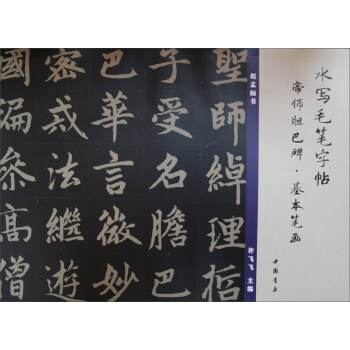 水写毛笔字帖
帝师胆巴碑·基本笔画
中国书店
赵孟頫书
飞飞 主编
聖師綽理哲
子受名膽巴
巴華言微妙
密戒法繼遊
國遍參高僧